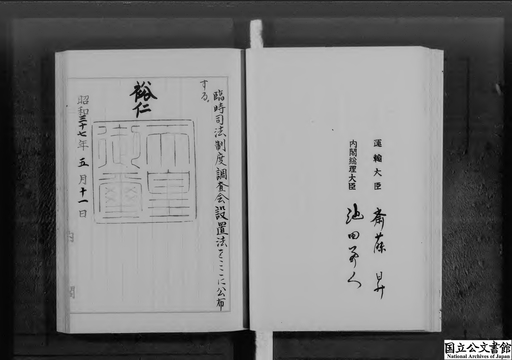 臨時司法制度調査会設置法をここに公布
する。
裕仁
天皇御璽
昭和三十七年五月十一日
運輸大臣 斎藤昇
内閣総理大臣 池田勇人
国立公文書館
National Archives of Japan